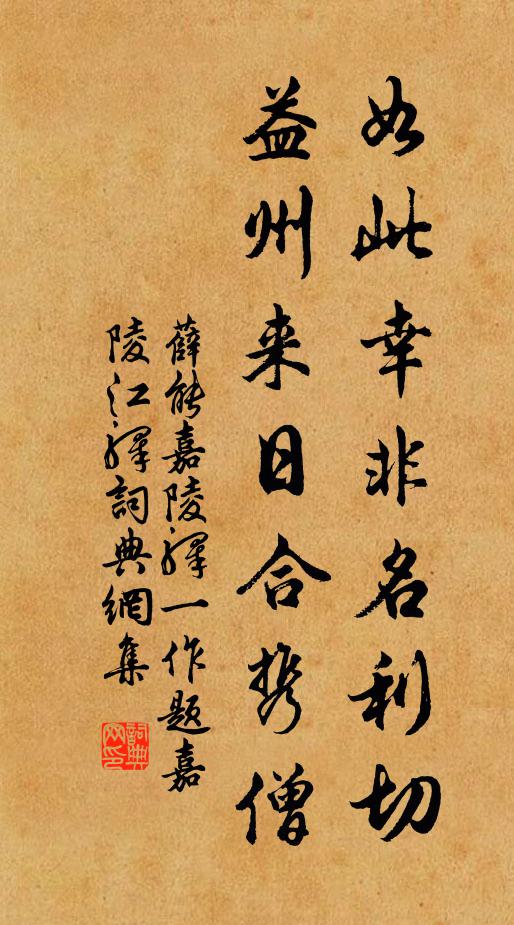 如此幸非名利切
益州来日合携僧
薛能嘉陵驿一作题嘉
陵江驿詞典網集
詞典網印